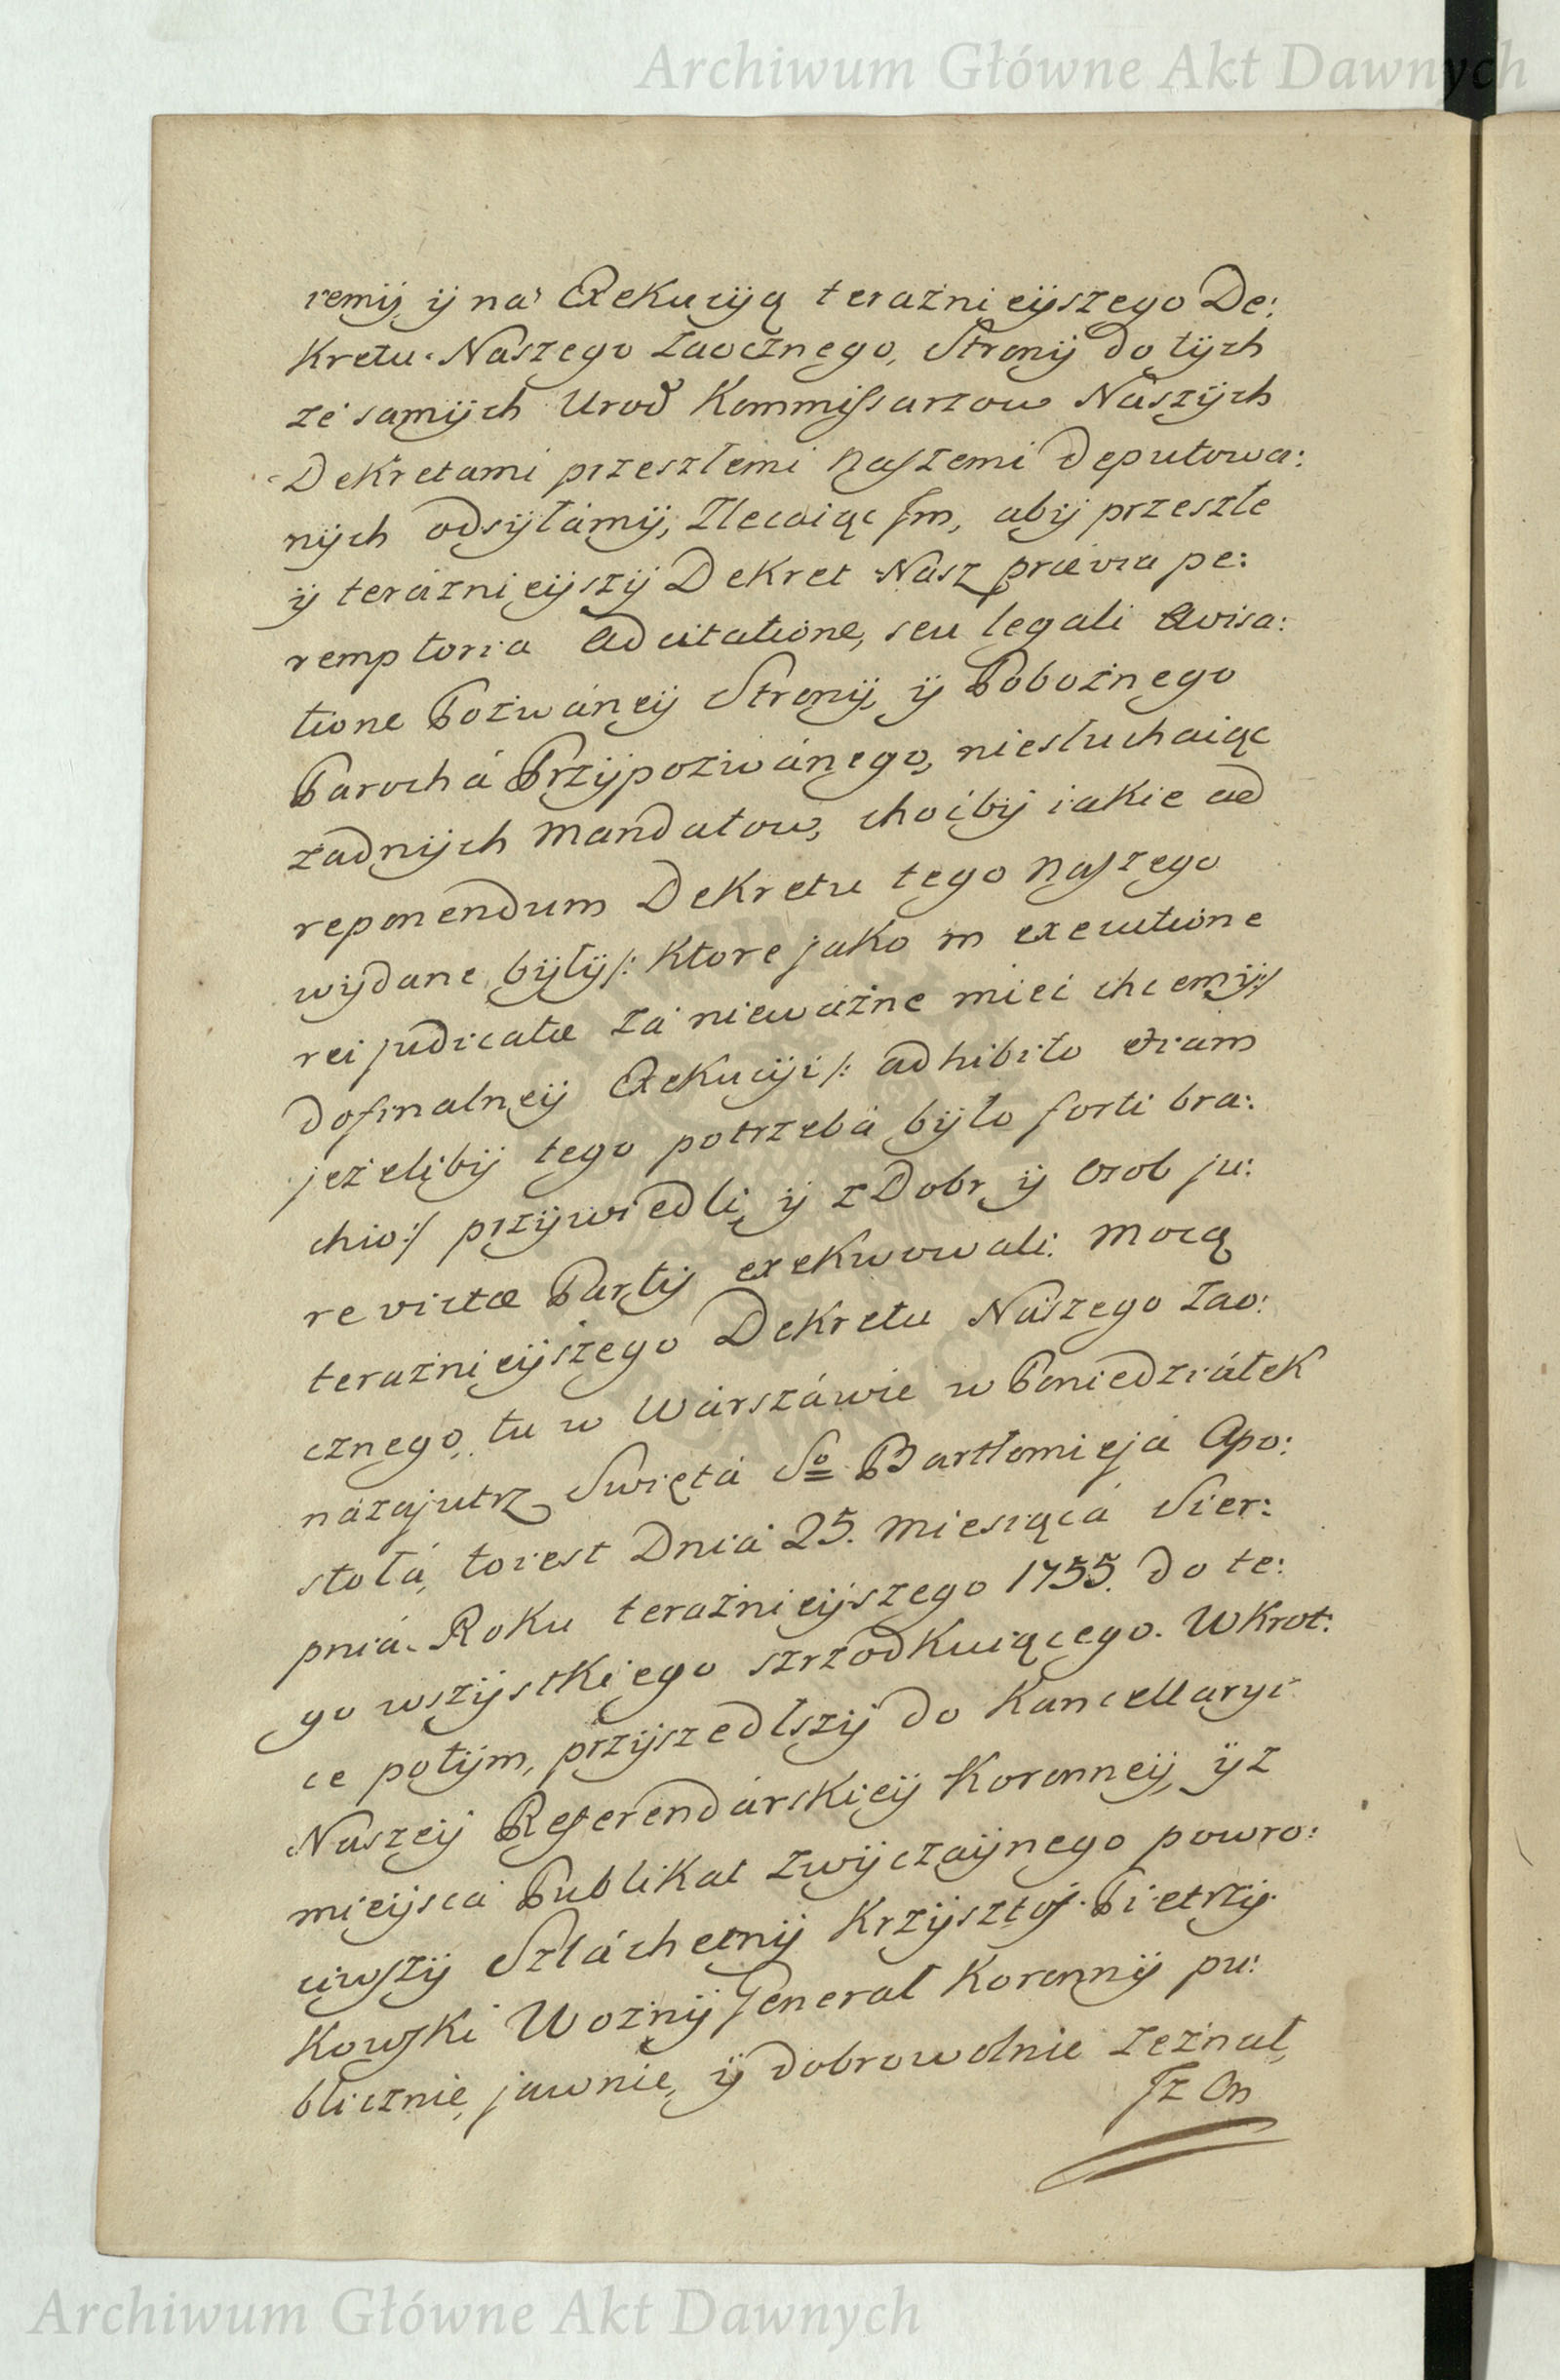 Archiwum Główne Akt Dawnych
remij, ij na Exekuciją teraźnieijszego De:
kretu Naszego zaocznego, Stronij do tijch
ze samijch Urod Kommissarzow Naszijch
Dekretami przeszłemi naszemi deputowa:
nijch odsijłamij, zlecaiąc Jm, abij przeszłe
ij teraznieijszij Dekret Nasz prævia pe:
remptoria adcitatione, seu legali avisa:
tione Pozwáneij Stronij, ij Pobożnego
Parochá Przijpozwánego, niesłuchaiąc
żadnijch mandatow, choćbij iakie ad
reponendum Dekretu tego naszego
wijdane bijłij /: ktore jako in executione
rei judicatæ zá nieważne mieć chcemij :/
dofinalneij Exekuciji /: adhibito etiam
jeżelibij tego potrzebá bijło forti bra:
chio :/ przijwiedli, ij z Dobr ij osob ju:
re victæ Partij exekwowali. Mocą
teraźnieijszego Dekretu Naszego zao:
cznego, tu w Warszáwie w Poniedziáłek
názajutrz Swiętá So Bartłomiejá Apo:
stołá, toiest Dniá 25. miesiącá Sier:
pniá Roku teraźnieijszego 1755. do te:
go wszijstkiego szrzodkuiącego. Wkrot:
ce potijm, przijszedłszij do Kancellaryi
Naszeij Referendárskieij Koronneij, ij z
mieijscá Publikat zwijczaijnego powro:
ciwszij Szláchetnij Krzijsztof Pietrzij
kowski Woźnij Jenerał Koronnij pu:
blicznie, jawnie, ij dobrowolnie zeznał,
Jż On
Archiwum Główne Akt Dawnych